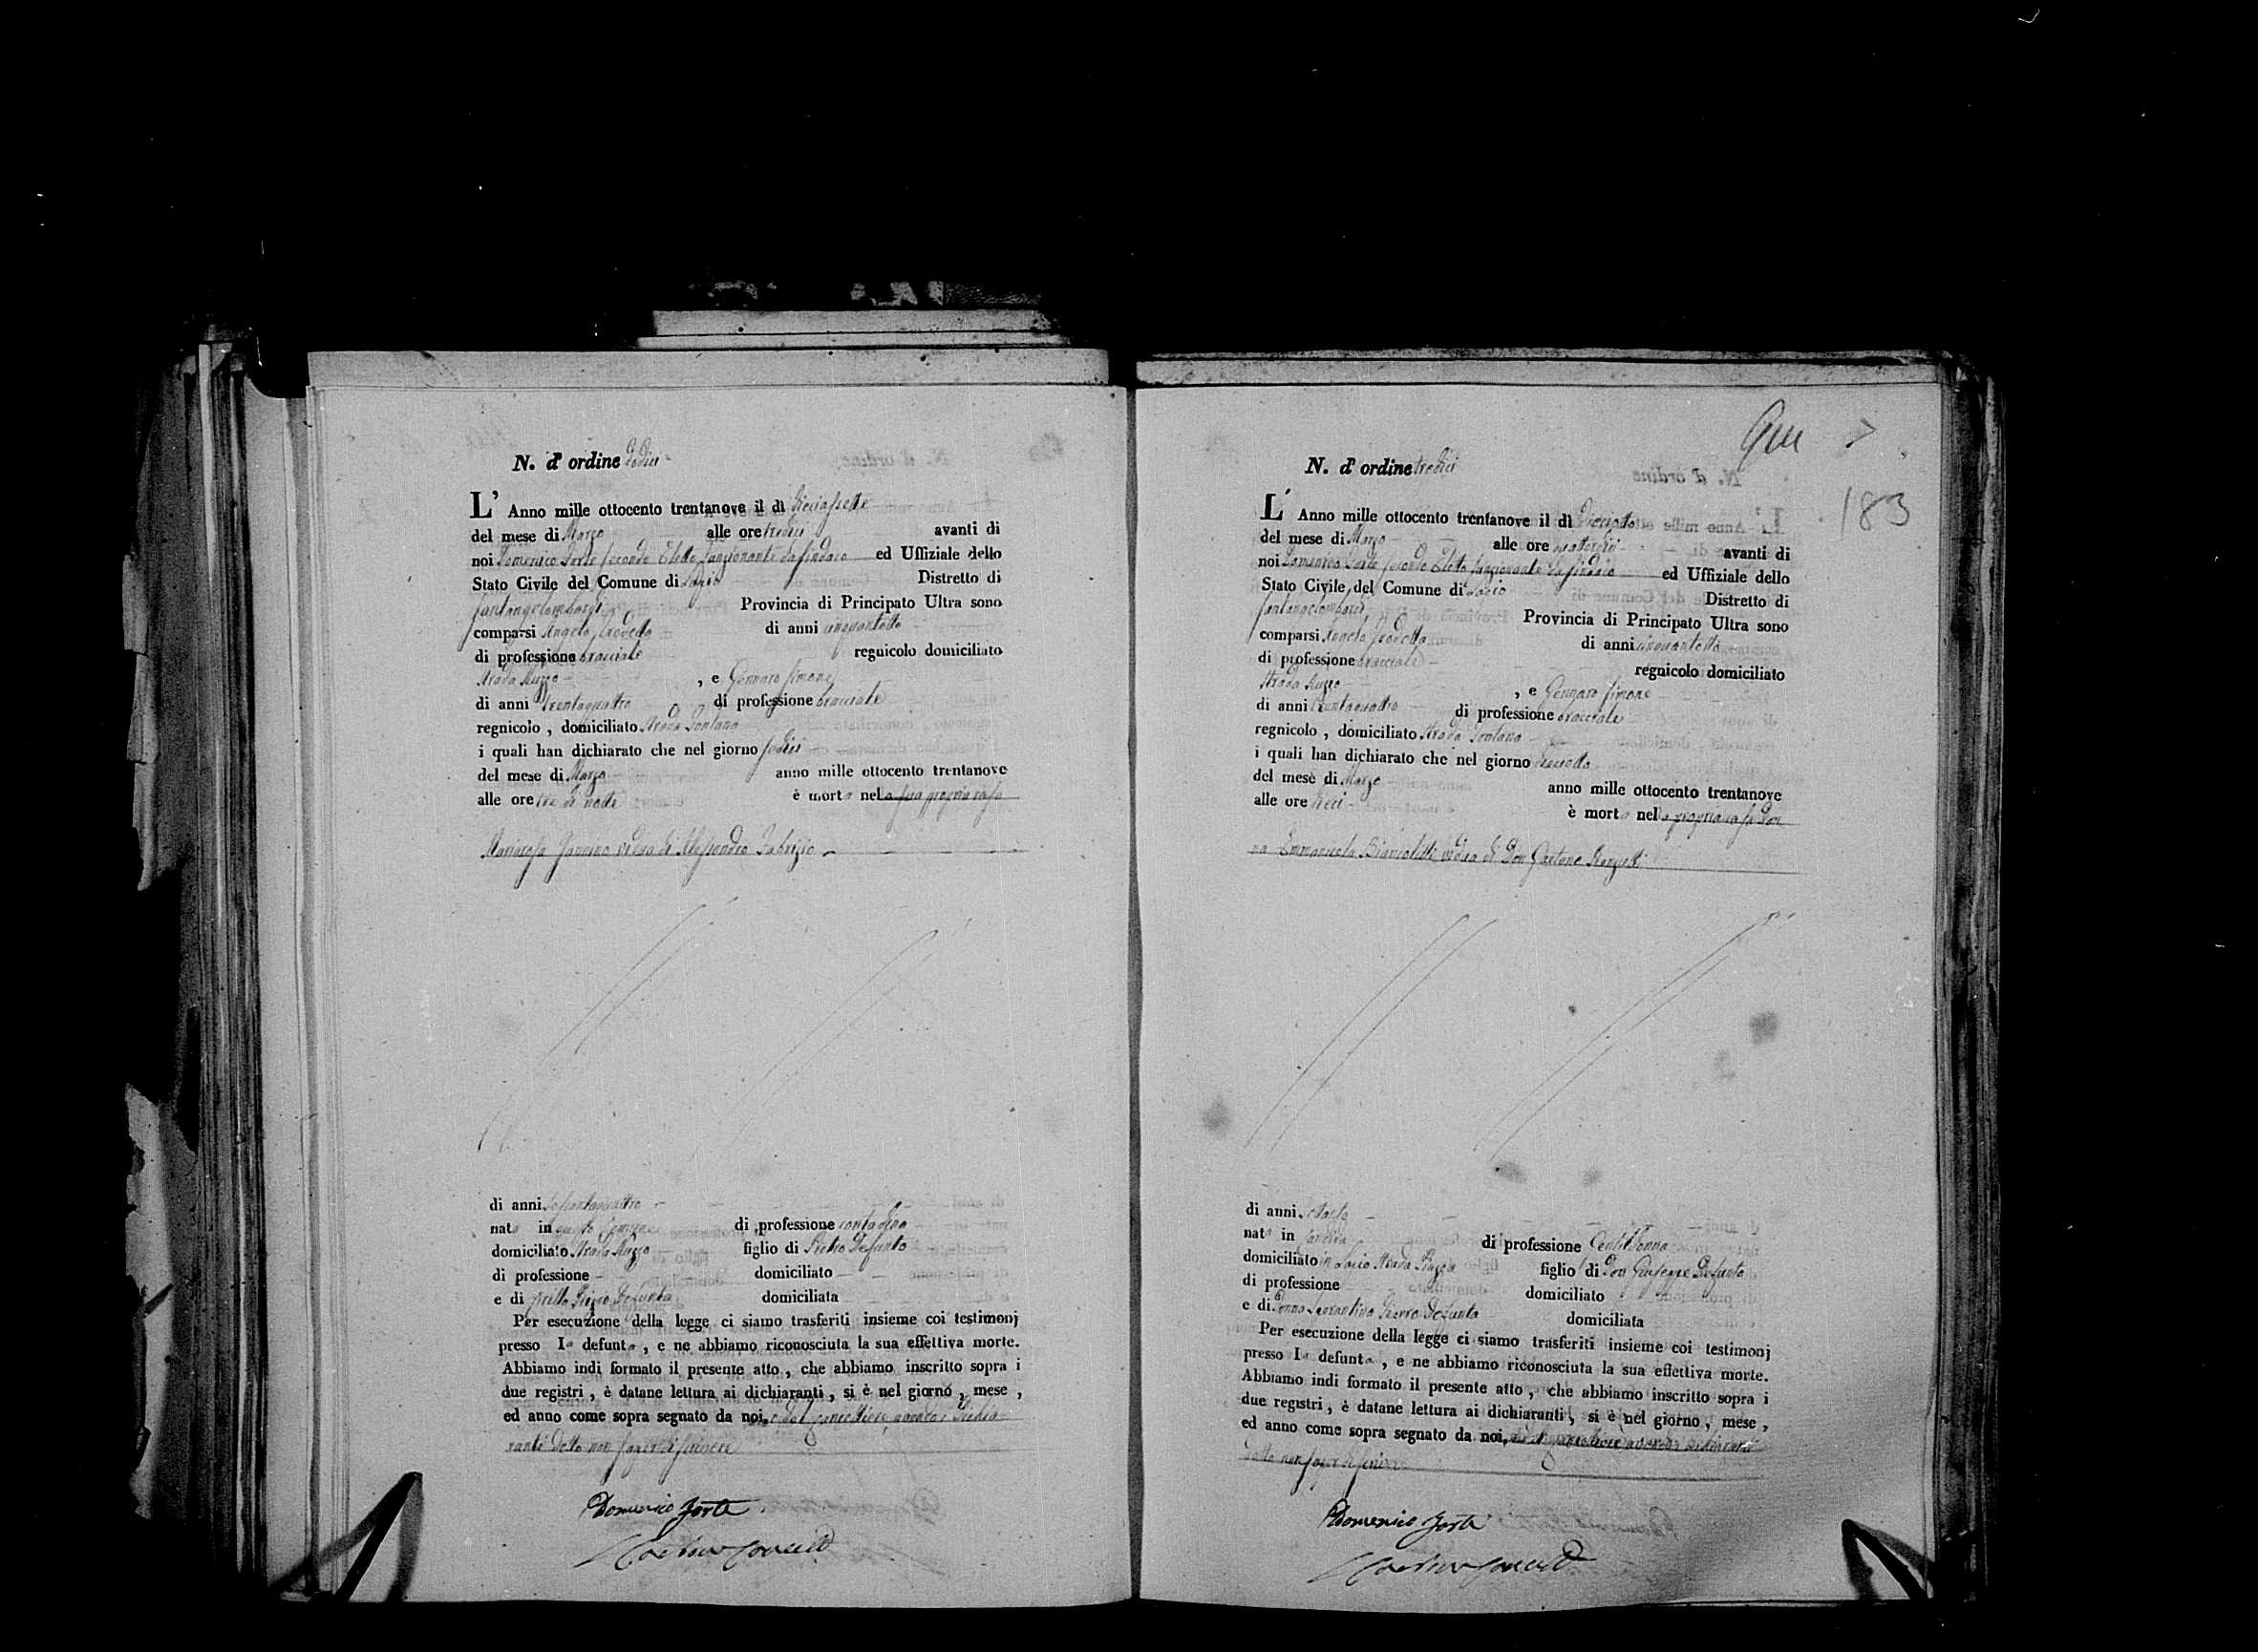 N. d' ordine dodici
L' Anno mille ottocento trentanove il dì diciassette
del mese di Marzo alle ore tredici avanti di
noi Domenico Forte secondo Eletto funzionante da sindaco ed Uffiziale dello
Stato Civile del Comune di Lacio Distretto di
Santangelombardi Provincia di Principato Ultra sono
comparsi Angelo di anni cinquantotto
di professione bracciale regnicolo domiciliato
strada Muzzo , e Gennaro Simone
di anni trentaquattro di professione bracciale
regnicolo , domiciliato strada Fontana
i quali han dichiarato che nel giorno sedici
del mese di Marzo anno mille ottocento trentanove
alle ore tre di notte è morta nella sua propria casa
Mariarosa vidua di Alessandro Fabrizio
di anni sessantaquattro
nata in questo Comune di professione contadina
domiciliato strada Muzzo figlio di Pietro defunto
di professione domiciliato
e di defunta domiciliata
Per esecuzione della legge ci siamo trasferiti insieme coi testimonj
presso la defunta , e ne abbiamo riconosciuta la sua effettiva morte.
Abbiamo indi formato il presente atto , che abbiamo inscritto sopra i
due registri , è datane lettura ai dichiaranti , si è nel giorno , mese ,
ed anno come sopra segnato da noi, e dal cancelliere avendo i dichia
ranti detto non saper di scrivere
Domenico Forte
Gm
183
N. d' ordine tredici
L' Anno mille ottocento trentanove il dì dieciotto
del mese di Marzo alle ore quattordici avanti di
noi Domenico Forte secondo Eletto funzionante da sindaco ed Uffiziale dello
Stato Civile del Comune di Lacio Distretto di
Santangelombardi Provincia di Principato Ultra sono
comparsi Angelo di anni cinquantotto
di professione bracciale regnicolo domiciliato
strada Muzzo , e Gennaro Simone
di anni trentaquattro di professione bracciale
regnicolo , domiciliato strada Fontana
i quali han dichiarato che nel giorno dieciotto
del mese di Marzo anno mille ottocento trentanove
alle ore dieci è morta nella propria casa Don
na Emmanuela vidua di Don Gaetano
di anni settanta
nata in di professione Gentildonna
domiciliato in Lacio strada Piazza figlio di Don Giuseppe defunto
di professione domiciliato
e di Donna defunta domiciliata
Per esecuzione della legge ci siamo trasferiti insieme coi testimonj
presso la defunta , e ne abbiamo riconosciuta la sua effettiva morte.
Abbiamo indi formato il presente atto , che abbiamo inscritto sopra i
due registri , è datane lettura ai dichiaranti , si è nel giorno , mese ,
ed anno come sopra segnato da noi, e dal cancelliere avendo i dichiaranti
detto non saper di scrivere
Domenico Forte